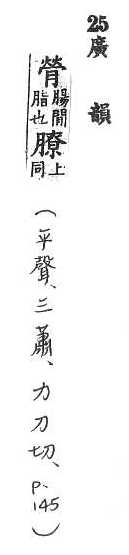 25 廣韻
膋腸閒脂也膫上同(平聲、三蕭、力刀切、p.145)